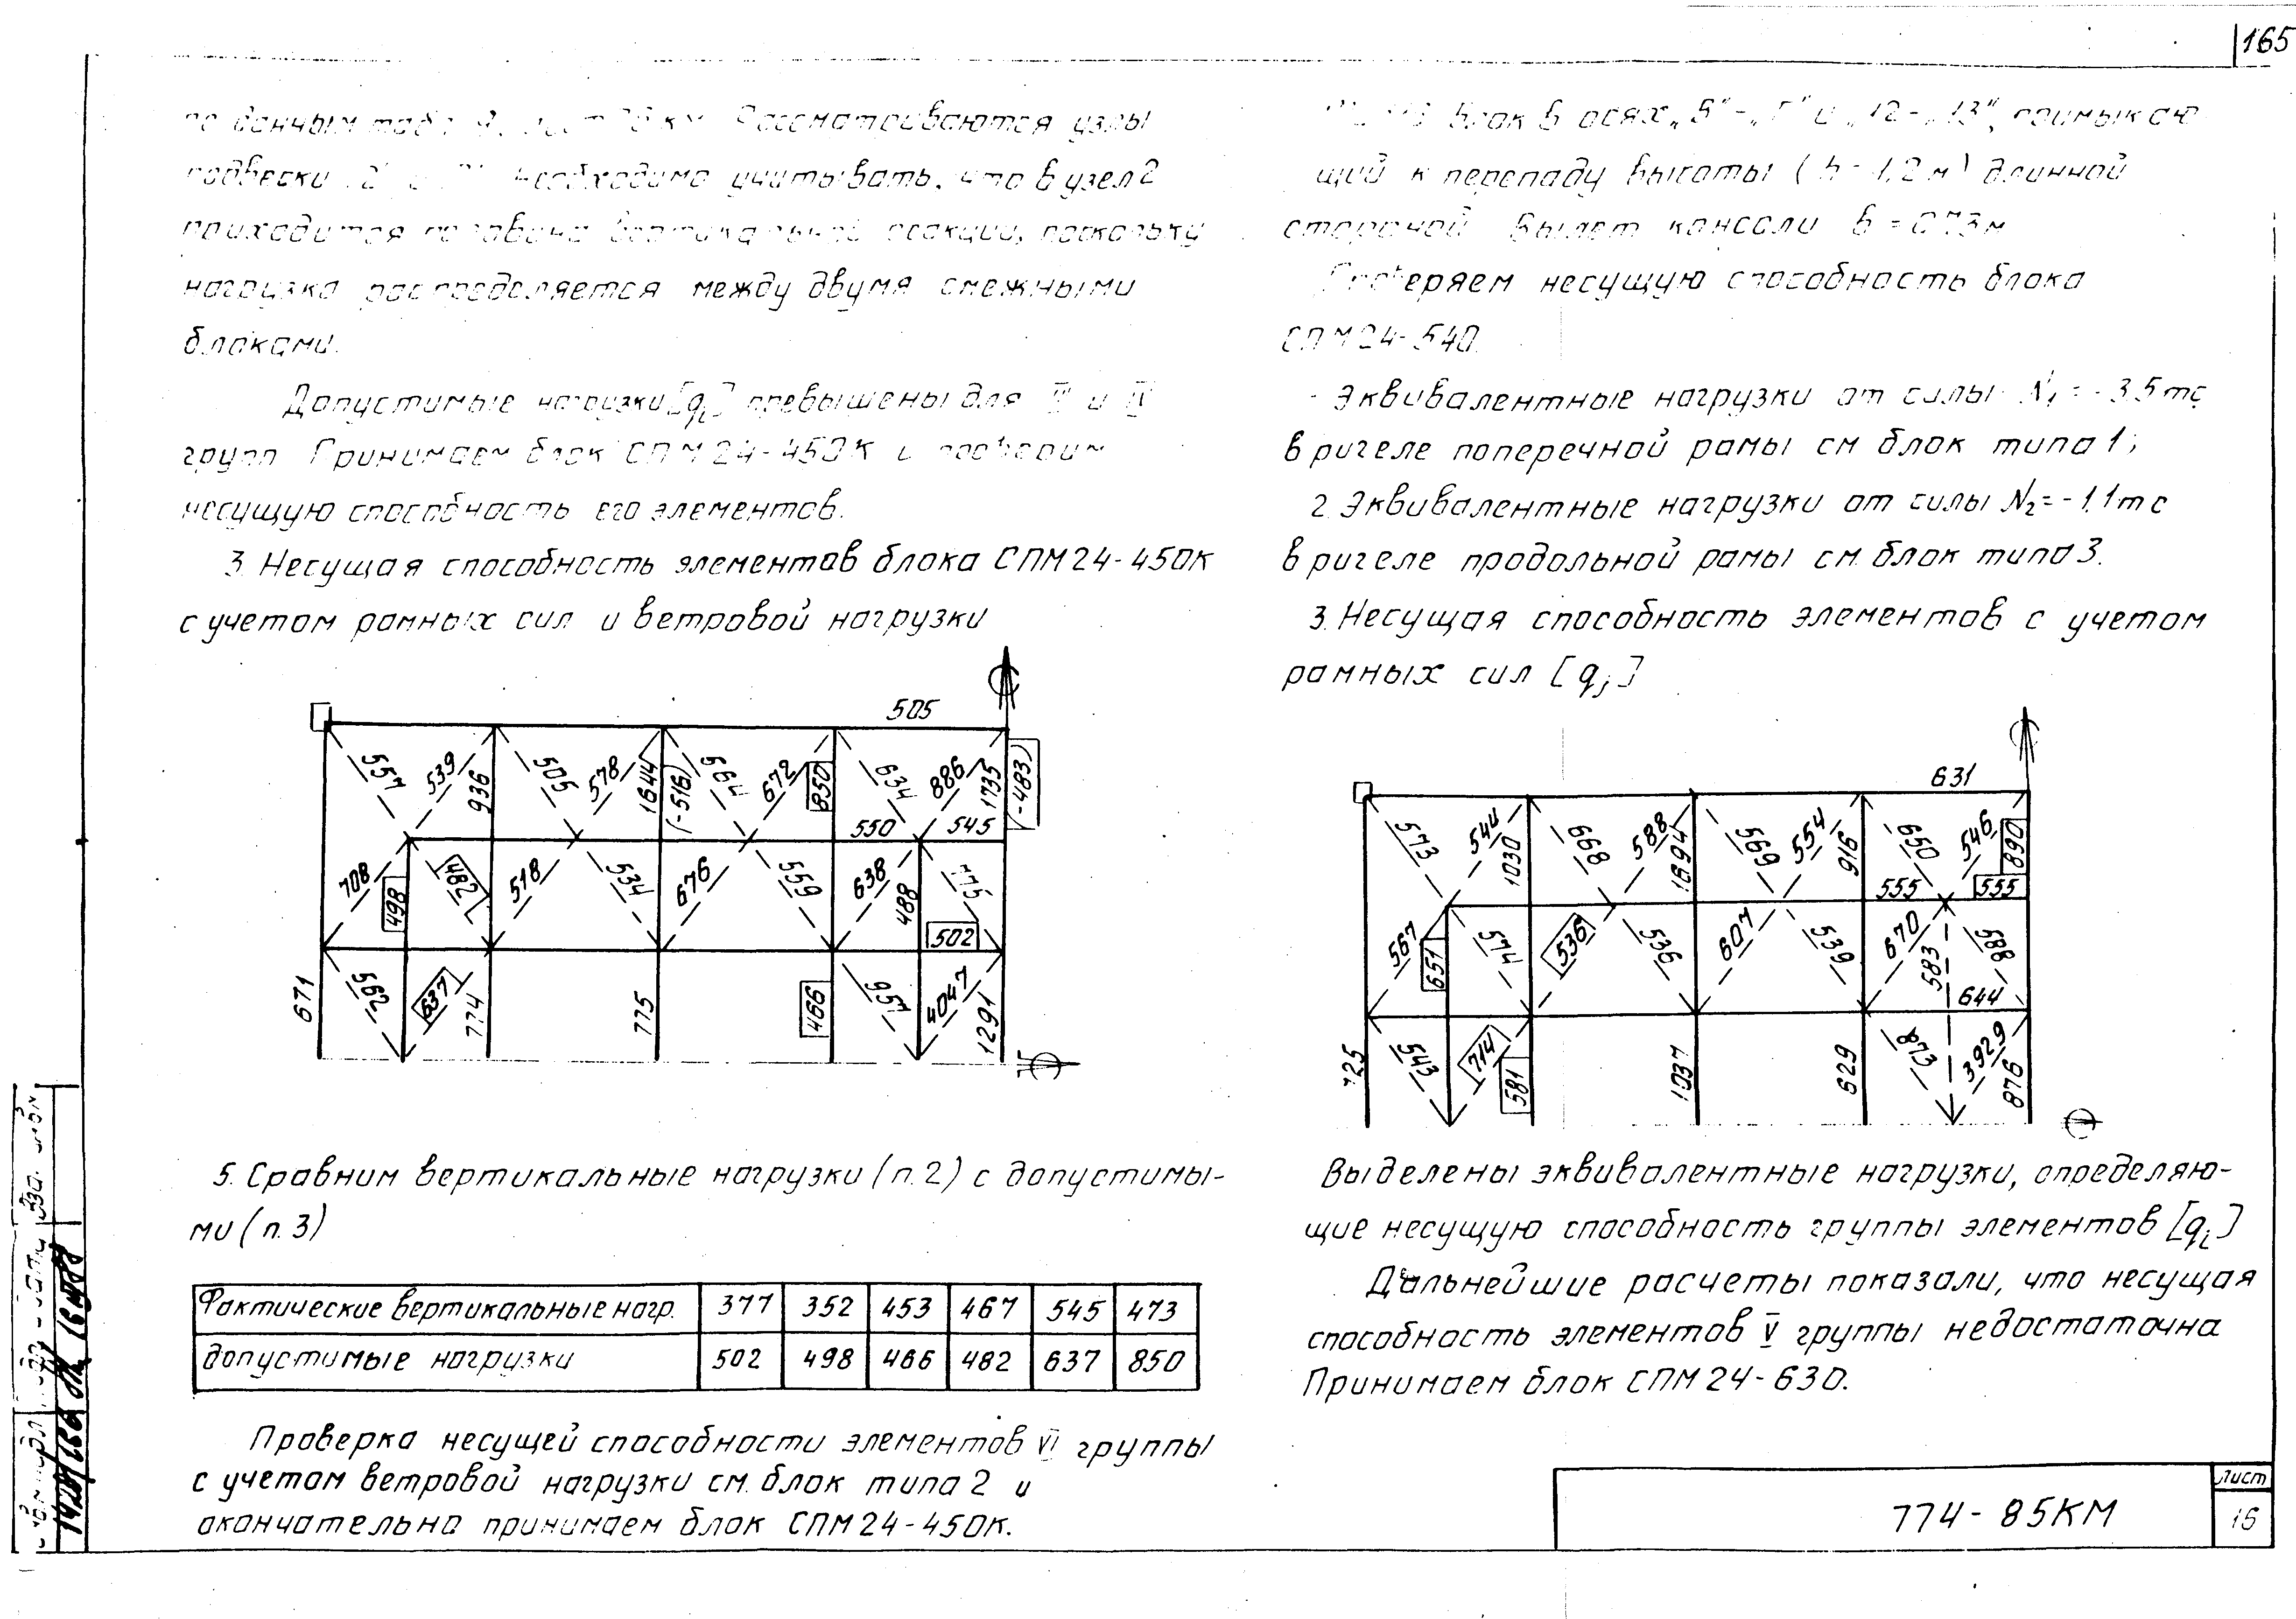 165
по данным табл. Рассматриваются узлы
подвески необходимо учитывать, что в узел 2
приходится половина вертикальной реакции, поскольку
нагрузка распределяется между двумя смежными
блоками.
Допустимые нагрузки [qi] превышены для III и IV
групп Принимаем блок СПМ 24-450К и проверим
несущую способность его элементов.
3. Несущая способность элементов блока СПМ24-450К
с учетом рамных сил и ветровой нагрузки
505
557 539 936 505 578 1644 (-516) 564 672 850 634 886 1735 (-483)
550 545
708 498 482 518 534 676 559 638 488 775
502
671 562 637 774 775 466 957 4047 1291
5. Сравним вертикальные нагрузки (п.2) с допустимы-
ми (п.3)
Фактические вертикальные нагр. 377 352 453 467 545 473
допустимые нагрузки 502 498 466 482 637 850
Проверка несущей способности элементов VI группы
с учетом ветровой нагрузки см. блок типа 2 и
окончательно принимаем блок СПМ24-450К.
блок в осях „Б"-„Г" и „12-„13", примыкаю
щий к перепаду высоты (h-1,2м) длинной
стороной Вылет консоли b=0,73м
Проверяем несущую способность блока
СПМ24-540.
Эквивалентные нагрузки от силы N1=-3,5тс
в ригеле поперечной рамы см блок типа 1;
2. Эквивалентные нагрузки от силы N2=-1,1тс
в ригеле продольной рамы см. блок типа 3.
3. Несущая способность элементов с учетом
рамных сил [qi]
631
573 544 1030 668 588 1694 569 554 916 650 546 890
555 555
567 651 574 536 536 607 539 670 583 588
644
725 543 714 581 1037 629 873 3929 876
Выделены эквивалентные нагрузки, определяю-
щие несущую способность группы элементов [qi]
Дальнейшие расчеты показали, что несущая
способность элементов V группы недостаточна
Принимаем блок СПМ24-630.
774-85КМ
Лист
16